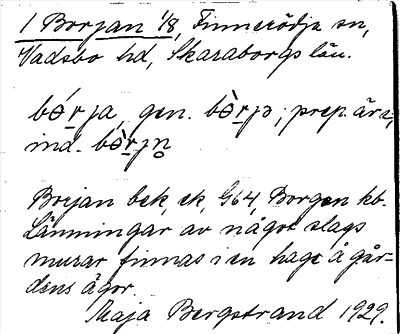 1 Borjan 1/8, Finnerödja sn,
Vadsbo hd, Skaraborgs län.
bór̲ja, gen. bòr̲jɔ; prep. är a;
ind. bòr̲jn̥
Brejan bek, ek, G64, Borgen kb.
Lämningar av något slags
murar finnas i en hage å går-
dens ägor.
Maja Bergstrand 1929.